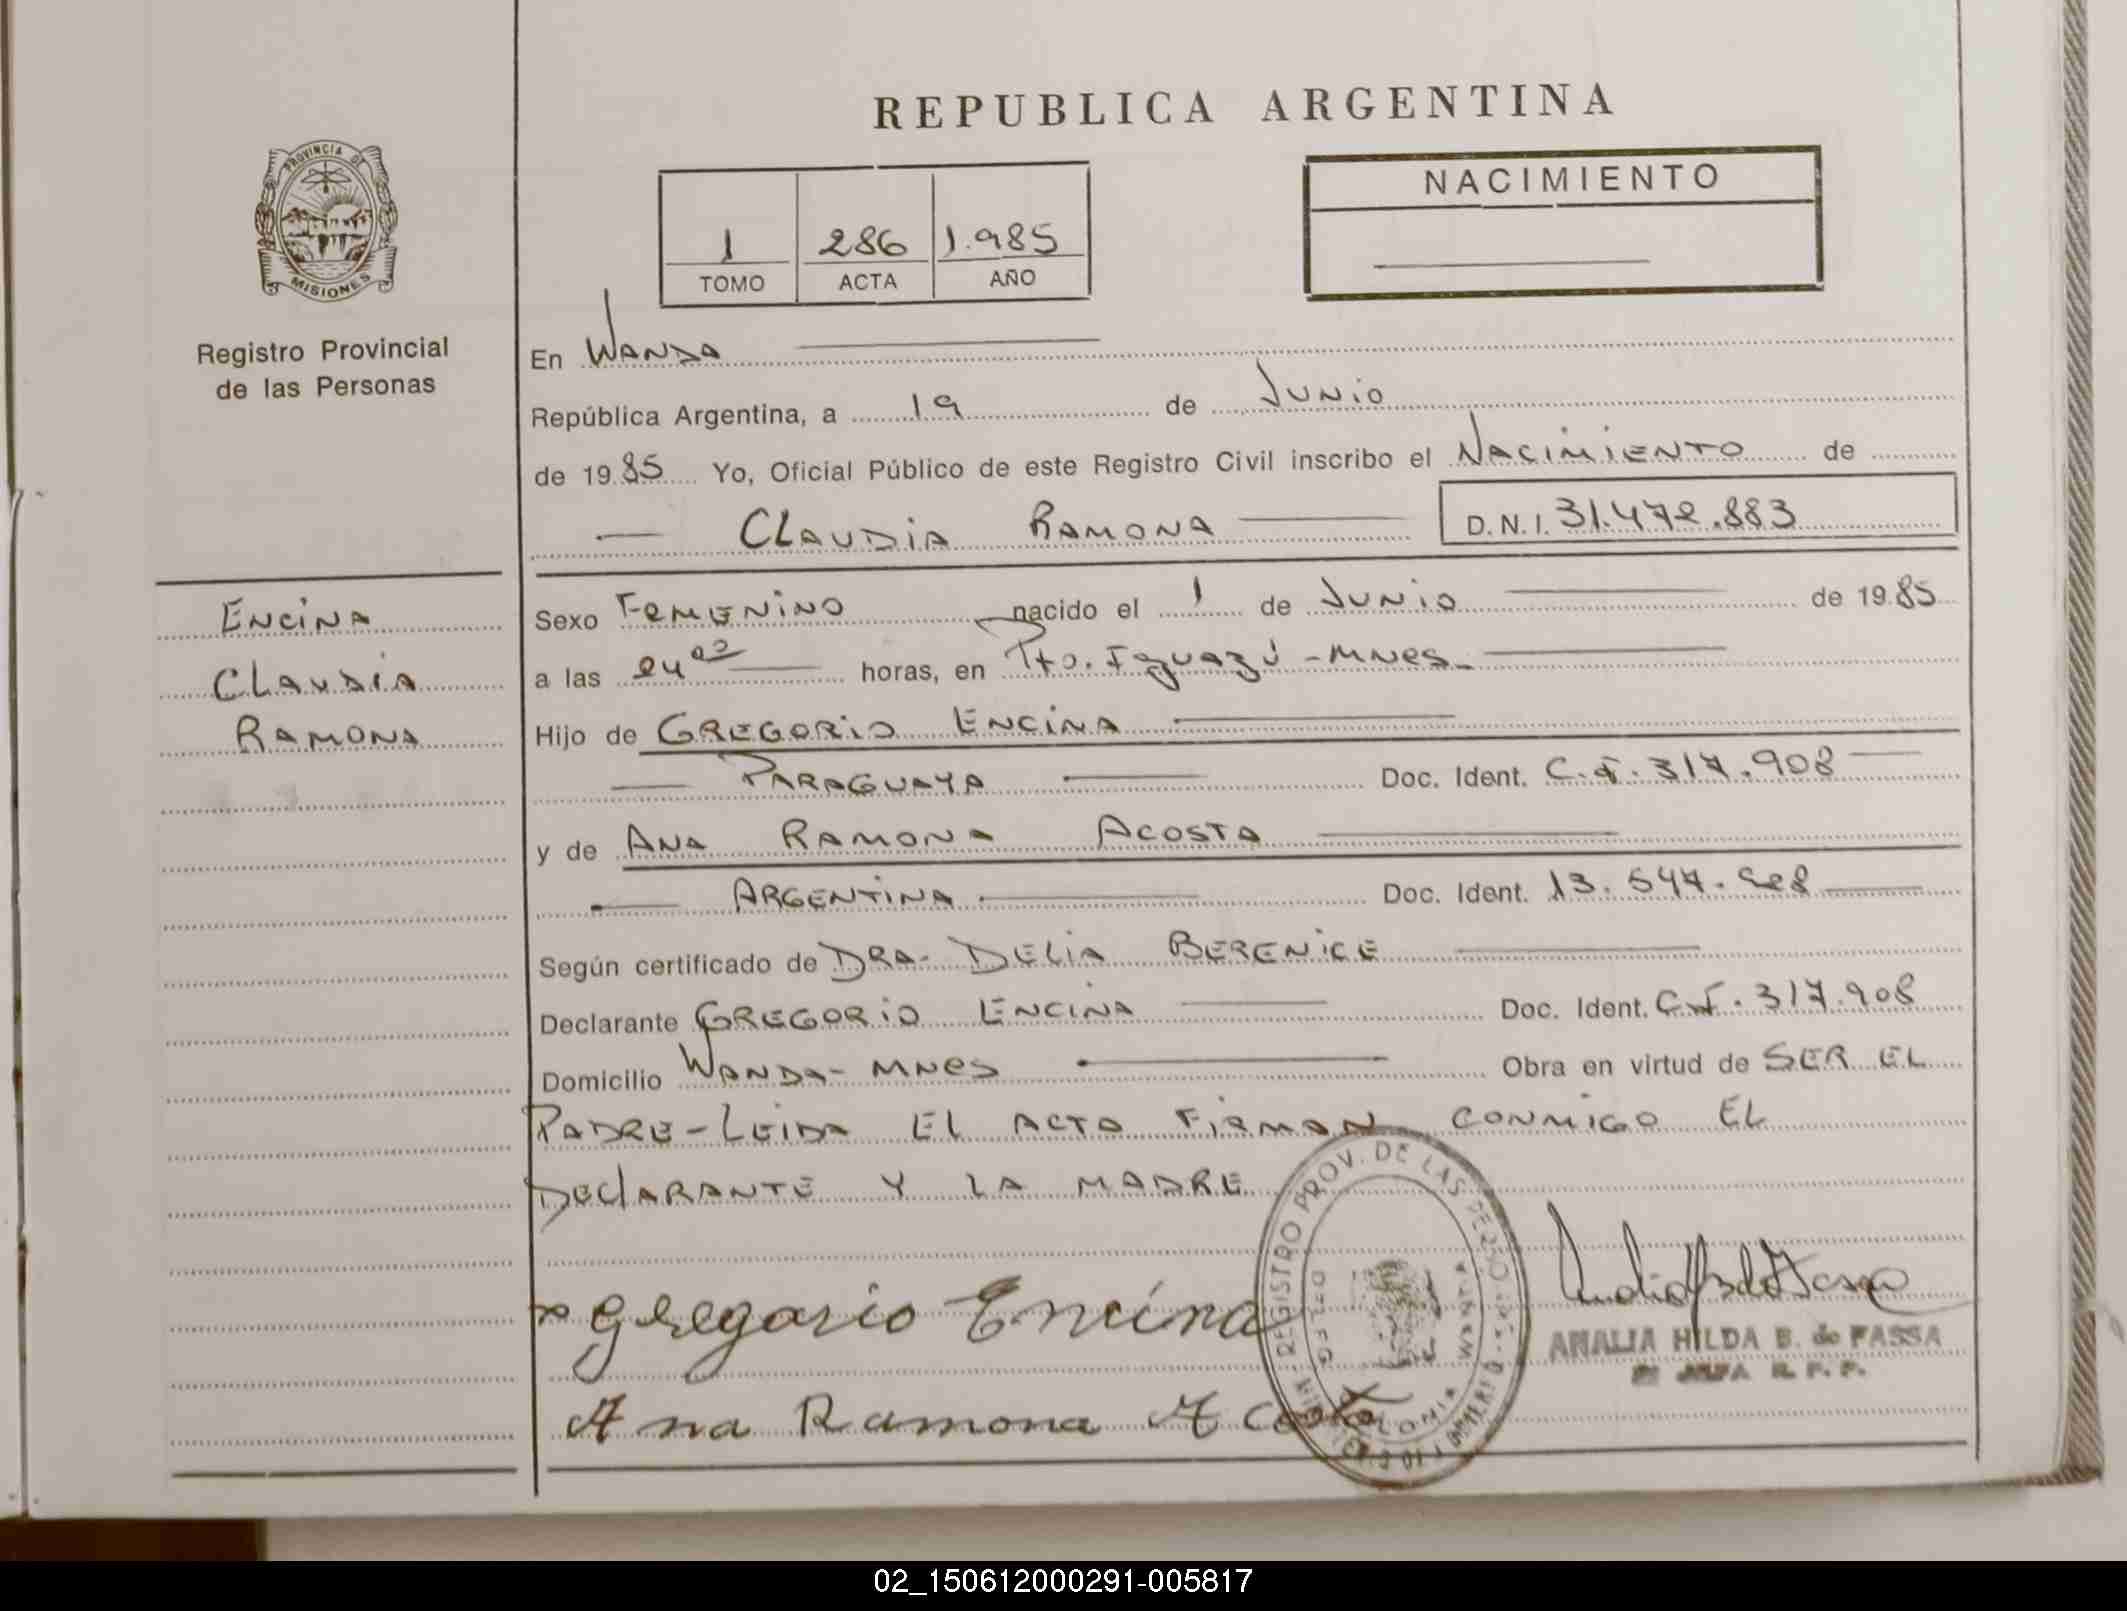 REPUBLICA ARGENTINA
PROVINCIA DE
MISIONES
Registro Provincial
de las Personas
1 286 1.985
TOMO ACTA AÑO
NACIMIENTO
En WANDA
República Argentina, a 19 de JUNIO
de 1985 Yo, Oficial Público de este Registro Civil inscribo el NACIMIENTO de
CLAUDIA RAMONA D.N.I. 31.472.883
ENCINA
CLAUDIA
RAMONA
Sexo FEMENINO nacido el 1 de JUNIO de 1985
a las 24 horas, en Pto. Iguazú - MNES
Hijo de GREGORIO ENCINA
PARAGUAYA Doc. Ident. C.I. 317.908
y de ANA RAMONA ACOSTA
ARGENTINA Doc. Ident. 13.547.
Según certificado de DRA- DELIA BERENICE
Declarante GREGORIO ENCINA Doc. Ident. C.I. 317.908
Domicilio WANDA- MNES Obra en virtud de SER EL
PADRE-LEIDA EL ACTA FIRMAN CONMIGO EL
DECLARANTE Y LA MADRE
Gregorio Encina
Ana Ramona Acosta
REGISTRO PROV. DE LAS PERSONAS
WANDA
ANALIA HILDA B. de FASSA
JEFA R. P. P.
02_150612000291-005817